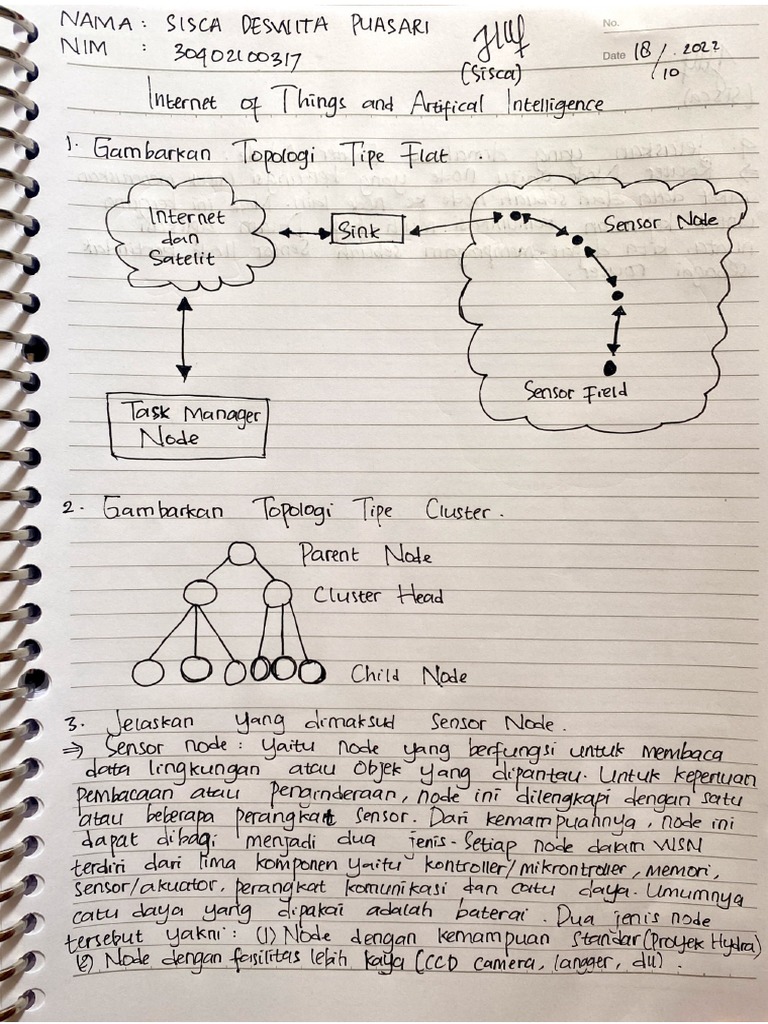 NAMA : SISCA DESWITA PUASARI
NIM : 30902100317
(Sisca)
No.
Date 18/10 2022
Internet of Things and Artifical Intelligence
1. Gambarkan Topologi Tipe Flat .
Internet
dan
Satelit
Sink
Sensor Node
Sensor Field
Task Manager
Node
2. Gambarkan Topologi Tipe Cluster .
Parent Node
Cluster Head
Child Node
3. Jelaskan yang dimaksud Sensor Node .
⇒ Sensor node : yaitu node yang berfungsi untuk membaca
data lingkungan atau Objek yang dipantau. Untuk keperluan
pembacaan atau penginderaan, node ini dilengkapi dengan satu
atau beberapa perangkat sensor. Dari kemampuannya, node ini
dapat dibagi menjadi dua jenis. Setiap node dalam WSN
terdiri dari lima komponen yaitu kontroller/mikrontroller, memori,
sensor/akuator, perangkat komunikasi dan catu daya. Umumnya
catu daya yang dipakai adalah baterai . Dua jenis node
tersebut yakni : (1) Node dengan kemampuan Standar (Proyek Hydra)
(2) Node dengan fasilitas lebih kaya (CCD camera, langger, dll) .